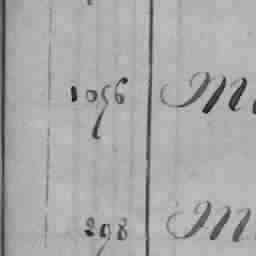 1056 M
298 M